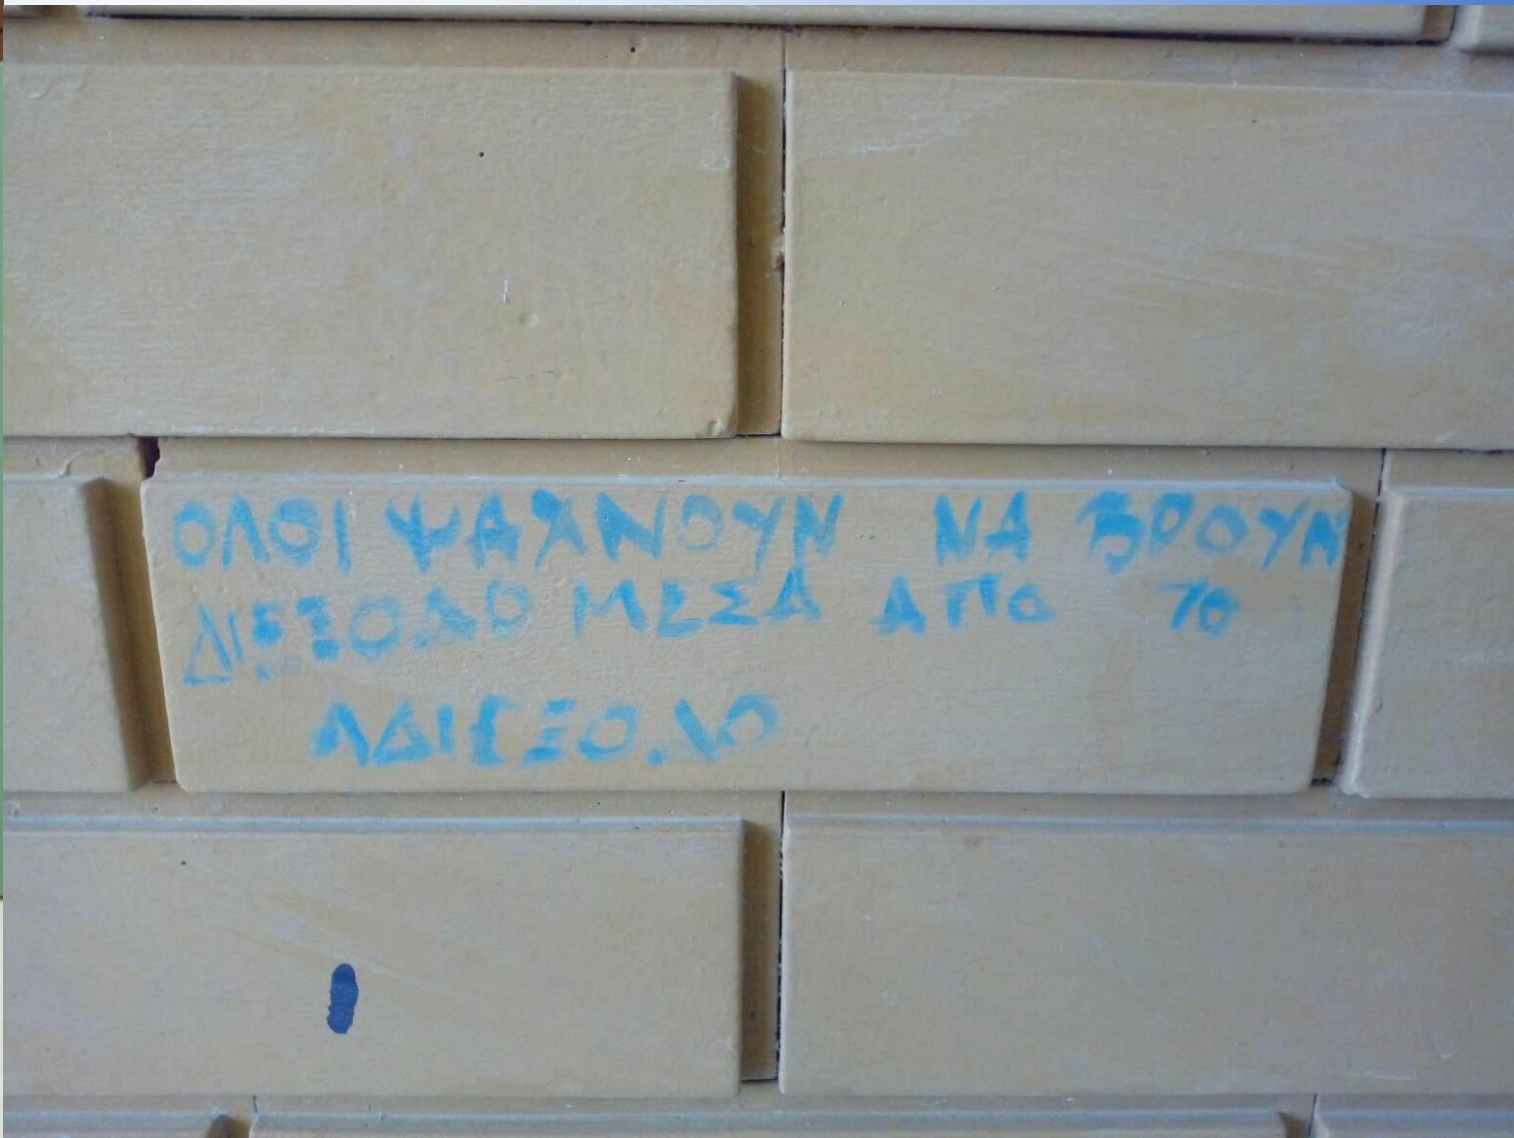 ΟΛΟΙ ΨΑΧΝΟΥΝ ΝΑ ΒΡΟΥΝ
ΔΙΕΞΟΔΟ ΜΕΣΑ ΑΠΟ ΤΟ
ΑΔΙΕΞΟΔΟ